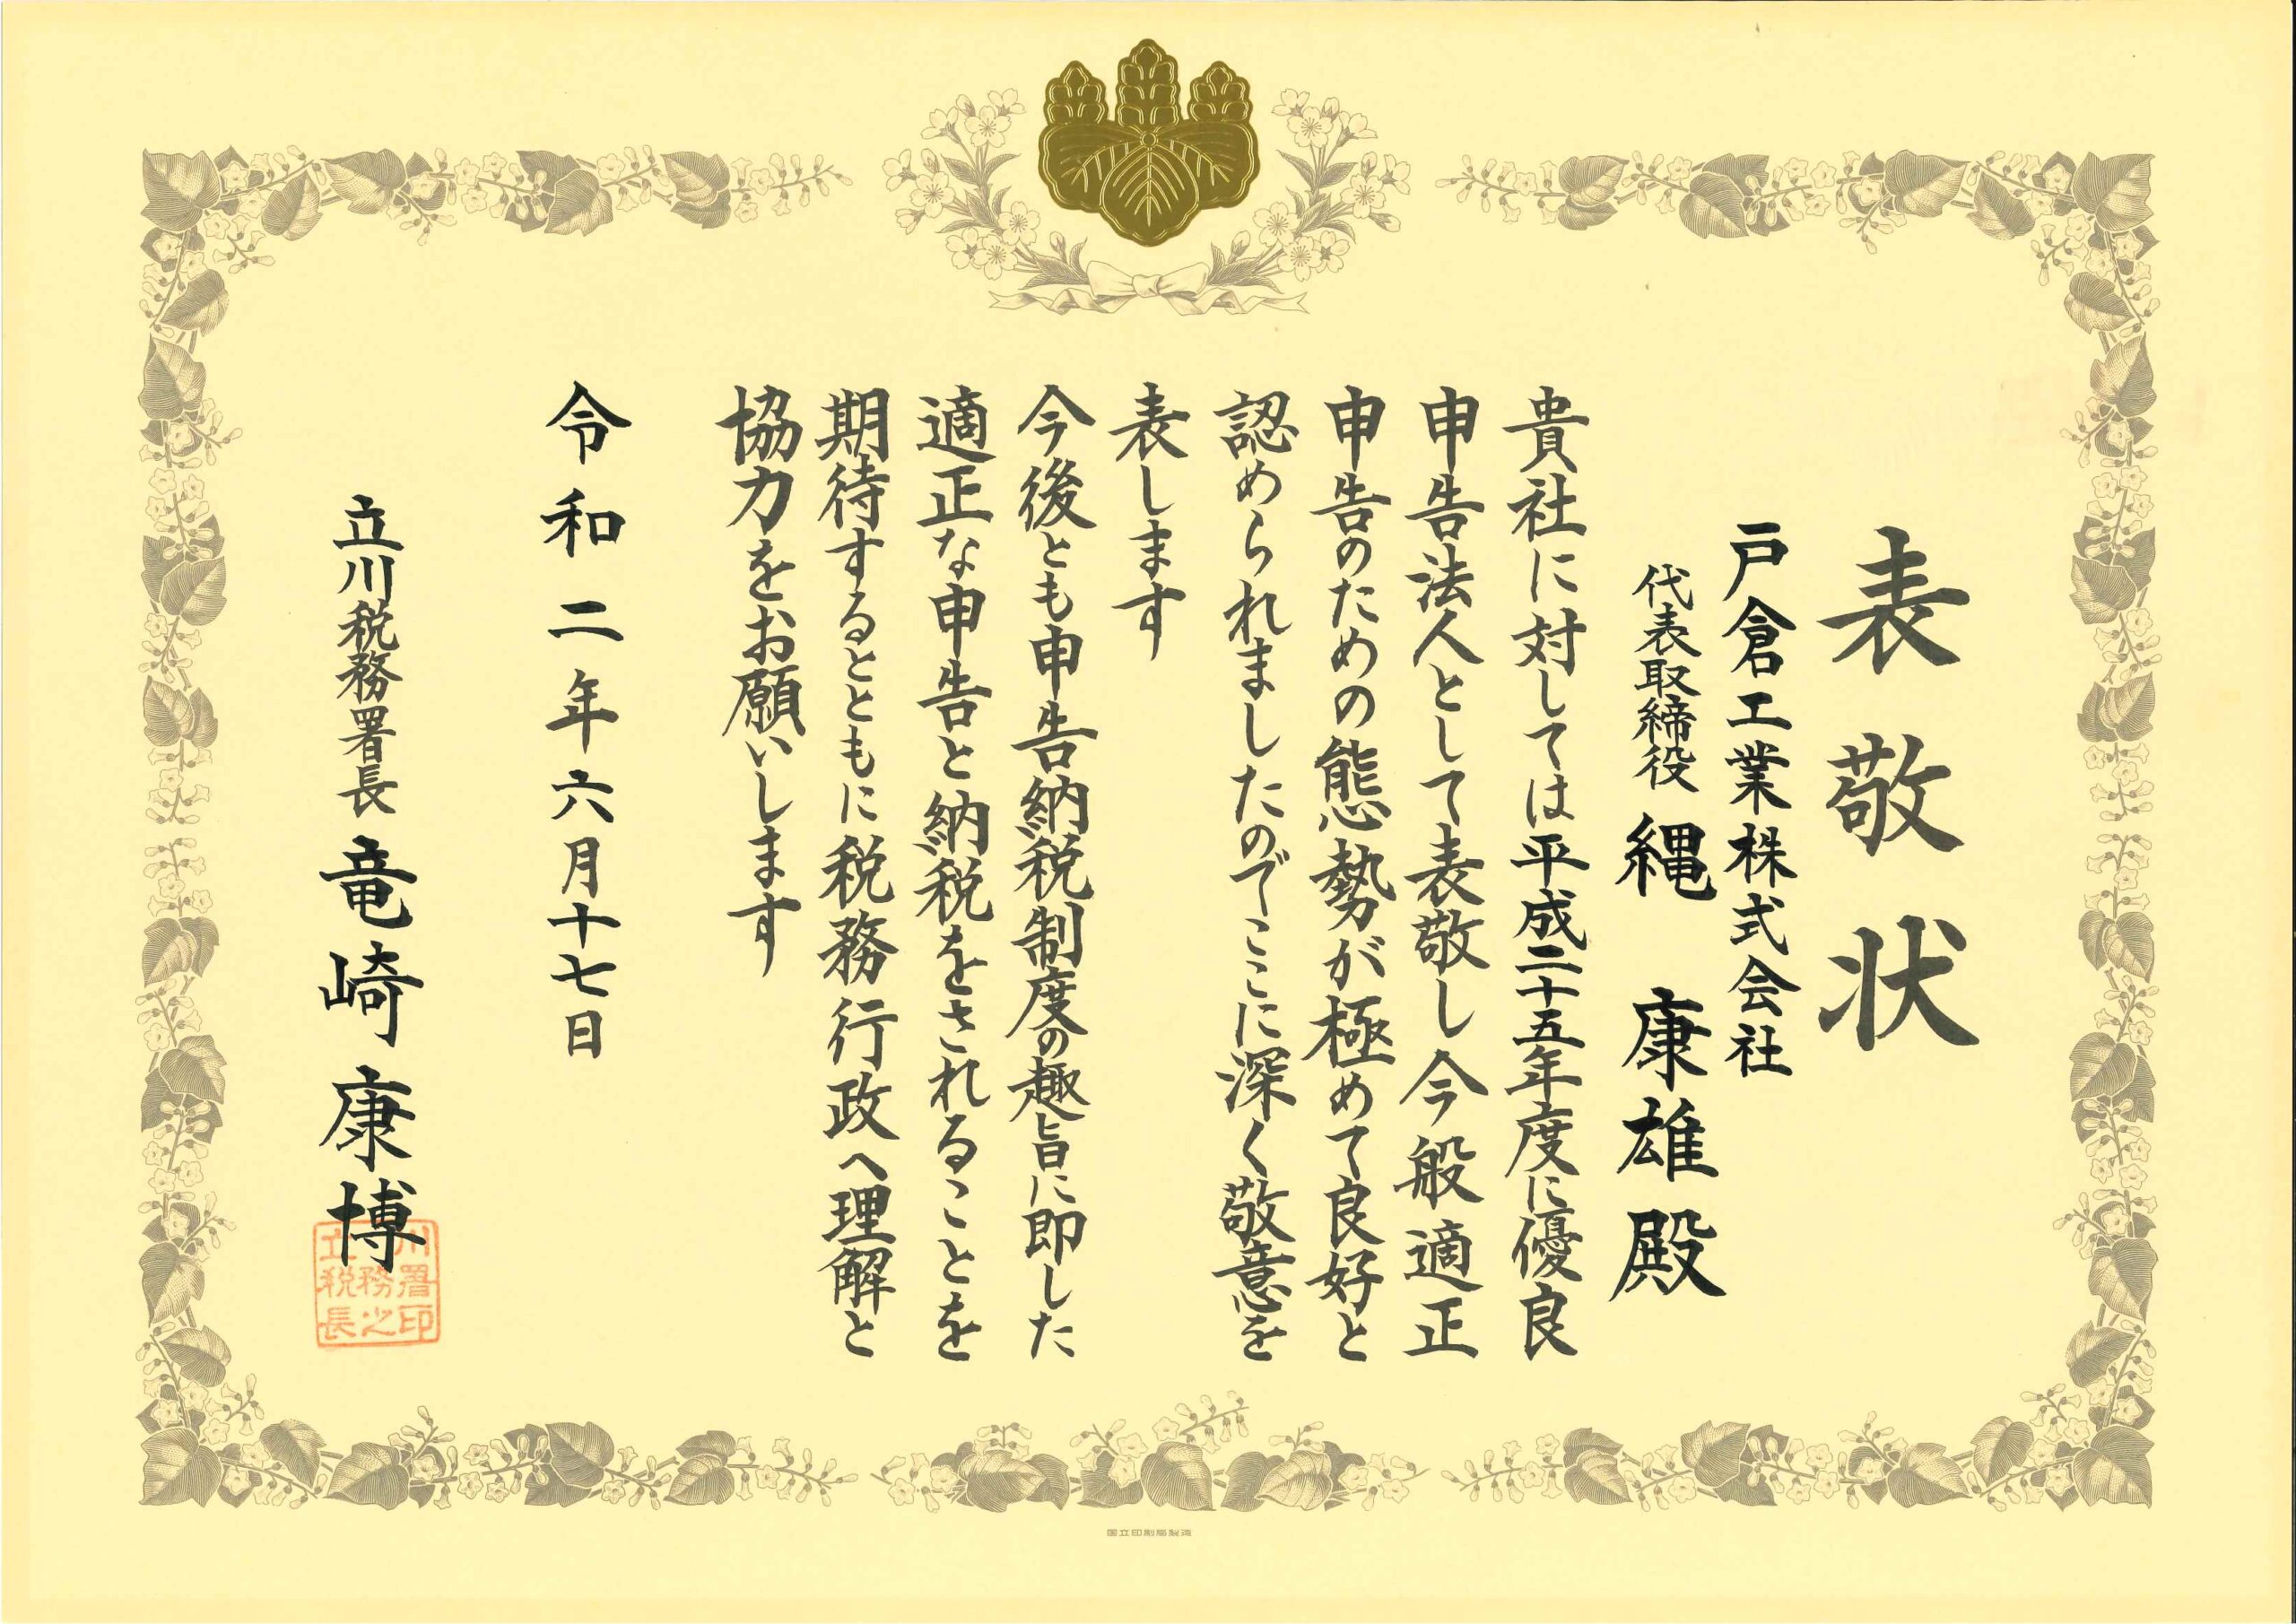 表敬状
戸倉工業株式会社
代表取締役 縄 康雄殿
貴社に対しては平成二十五年度に優良
申告法人として表敬し今般適正
申告のための態勢が極めて良好と
認められましたのでここに深く敬意を
表します
今後とも申告納税制度の趣旨に即した
適正な申告と納税をされることを
期待するとともに税務行政へ理解と
協力をお願いします
令和二年六月十七日
立川税務署長 竜崎康博
立川
税務署
長之印
国立印刷局製造